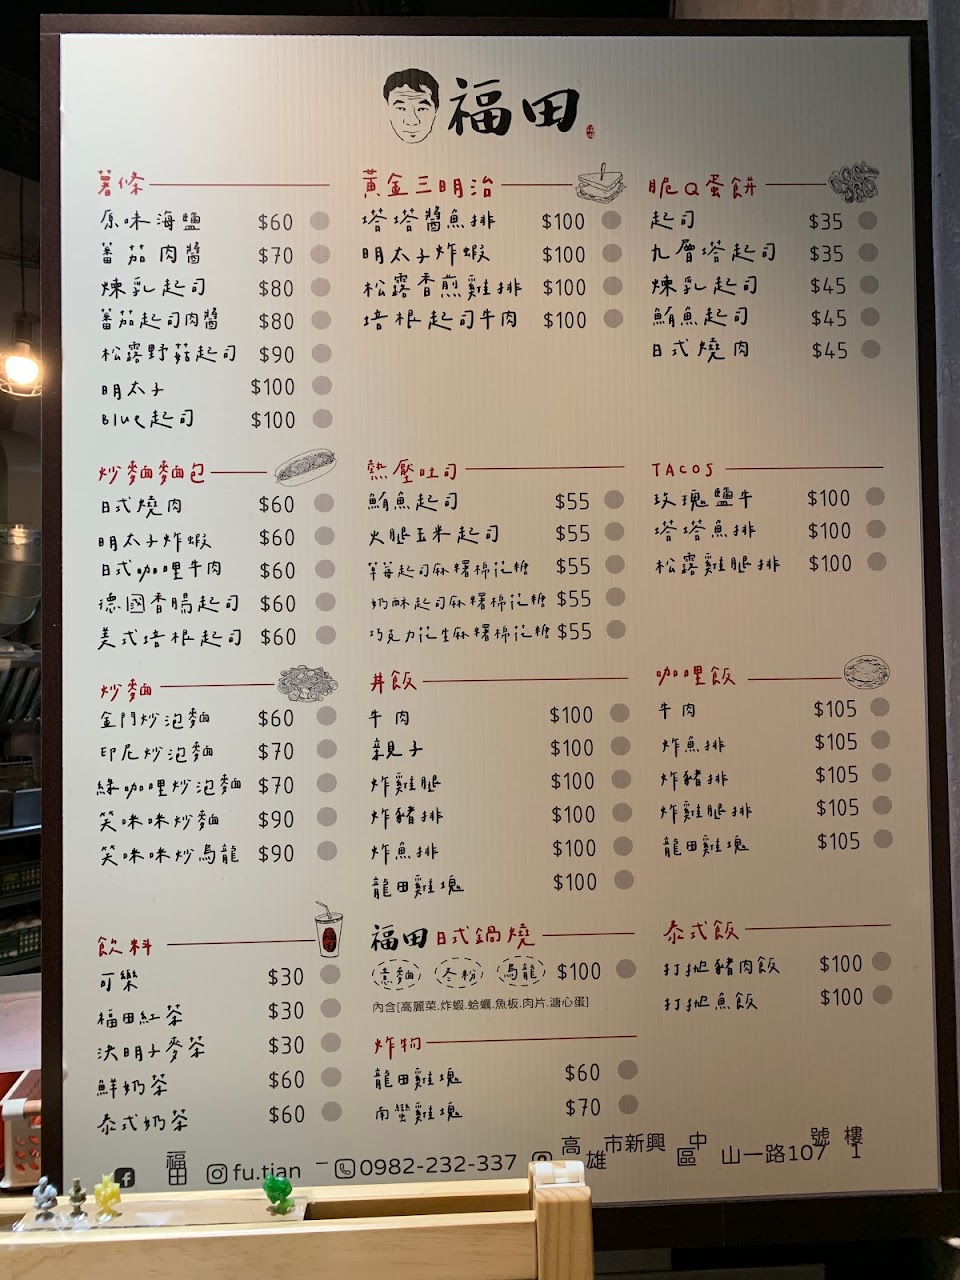 福田
薯條
原味海鹽 $60
蕃茄肉醬 $70
煉乳起司 $80
蕃茄起司肉醬 $80
松露野菇起司 $90
明太子 $100
Blue起司 $100
黃金三明治
塔塔醬魚排 $100
明太子炸蝦 $100
松露香煎雞排 $100
培根起司牛肉 $100
脆Q蛋餅
起司 $35
九層塔起司 $35
煉乳起司 $45
鮪魚起司 $45
日式燒肉 $45
炒麵麵包
日式燒肉 $60
明太子炸蝦 $60
日式咖哩牛肉 $60
德國香腸起司 $60
美式培根起司 $60
熱壓吐司
鮪魚起司 $55
火腿玉米起司 $55
草莓起司麻糬棉花糖 $55
奶酥起司麻糬棉花糖 $55
巧克力花生麻糬棉花糖 $55
TACOS
玫瑰鹽牛 $100
塔塔魚排 $100
松露雞腿排 $100
炒麵
金門炒泡麵 $60
印尼炒泡麵 $70
綠咖哩炒泡麵 $70
笑咪咪炒麵 $90
笑咪咪炒烏龍 $90
丼飯
牛肉 $100
親子 $100
炸雞腿 $100
炸豬排 $100
炸魚排 $100
龍田雞塊 $100
咖哩飯
牛肉 $105
炸魚排 $105
炸豬排 $105
炸雞腿排 $105
龍田雞塊 $105
飲料
福田
可樂 $30
福田紅茶 $30
決明子麥茶 $30
鮮奶茶 $60
泰式奶茶 $60
福田日式鍋燒
意麵 冬粉 烏龍 $100
內含[高麗菜.炸蝦.蛤蠣.魚板.肉片.溏心蛋]
炸物
龍田雞塊 $60
南蠻雞塊 $70
泰式飯
打拋豬肉飯 $100
打拋魚飯 $100
福田 fu.tian_ 0982-232-337 高雄市新興區中山一路107號1樓